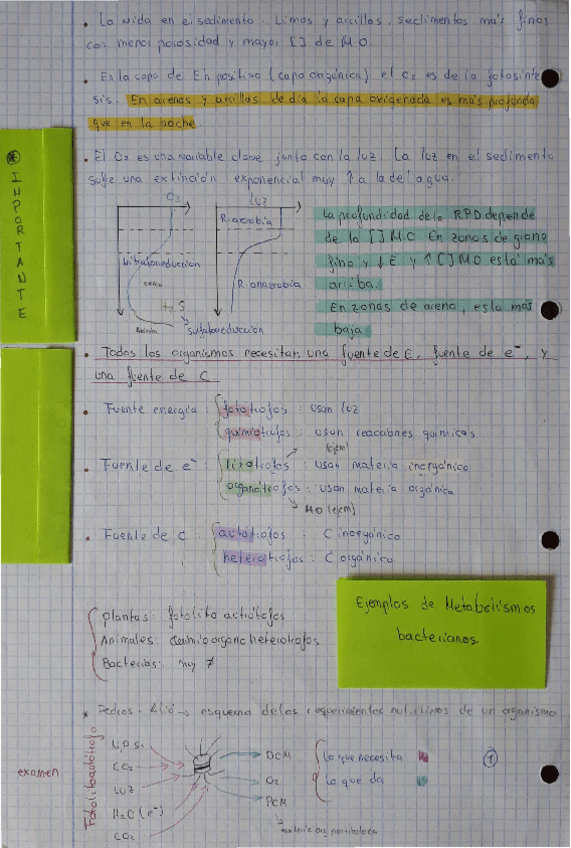 • La vida en el sedimento. Limos y arcillas, sedimentos más finos
con menor porosidad y mayor [] de MO.
• En la capa de Eh positivo (capa oxigénica) el O2 es de la fotosínte
sis. En arenas y arcillas de día la capa oxigenada es más profunda
que en la noche
• El O2 es una variable clave junto con la luz. La luz en el sedimento
sufre una extinción exponencial muy ↑ a la del agua.
* IMPORTANTE
O2
luz
R. aerobia
Nitratoreducción
R. anaerobia
H2S
Sulfatoreducción
La profundidad de la RPD depende
de la [] M.O. En zonas de grano
fino y ↓ E y ↑ [] MO está más
arriba.
En zonas de arena, está más
baja.
• Todos los organismos necesitan una fuente de E, fuente de e⁻, y
una fuente de C
• Fuente energía: fototrofos: usan luz
quimiotrofos: usan reacciones químicas
(ejem)
• Fuente de e⁻: litotrofos: usan materia inorgánica
organotrofos: usan materia orgánica
MO (ejem)
• Fuente de C: autótrofos: C inorgánico
heterotrofos: C orgánico
Ejemplos de Metabolismos
bacterianos
Plantas: fotolitoautótrofos
Animales: Quimioorganoheterotrofos
Bacterias: muy ≠
* Pedros-Alió → esquema de los requerimientos nutritivos de un organismo
examen
Fotolitoautótrofo
N, P, Si
CO2
LUZ
H2O (e⁻)
CO2
DCM
O2
PCM
Lo que necesita
Lo que da
①